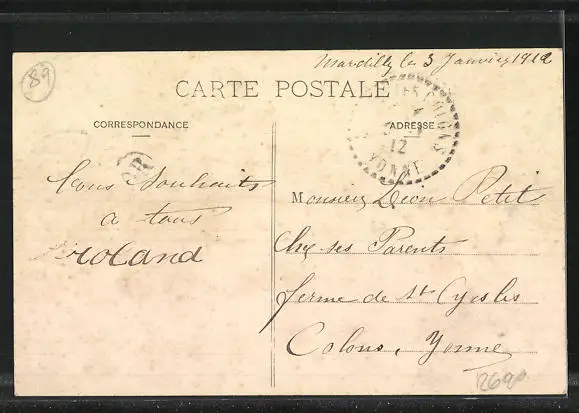 89
Mardilly le 3 Janvier 1912
CARTE POSTALE
CORRESPONDANCE
ADRESSE
12
YONNE
Bons Souhaits
a tous
Roland
Monsieur Léon Petit
Chez ses Parents
ferme de St Cyr les
Colons, Yonne